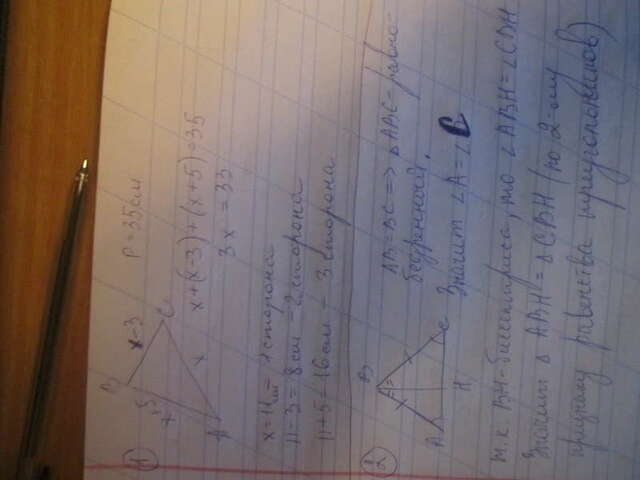 1
B
x-3
P = 35см
x+5
C
x
A
x+(x-3)+(x+5)=35
3x = 33
x=11см - 1 сторона
11-3=8см - 2 сторона
11+5=16см - 3 сторона
2
B
A
C
H
AB=BC => △ABC-равно-
бедренный.
Значит ∠A=∠C
т.к. BH-биссектриса, то ∠ABH=∠CBH
Значит △ABH=△CBH (по 2-ому
признаку равенства треугольников)